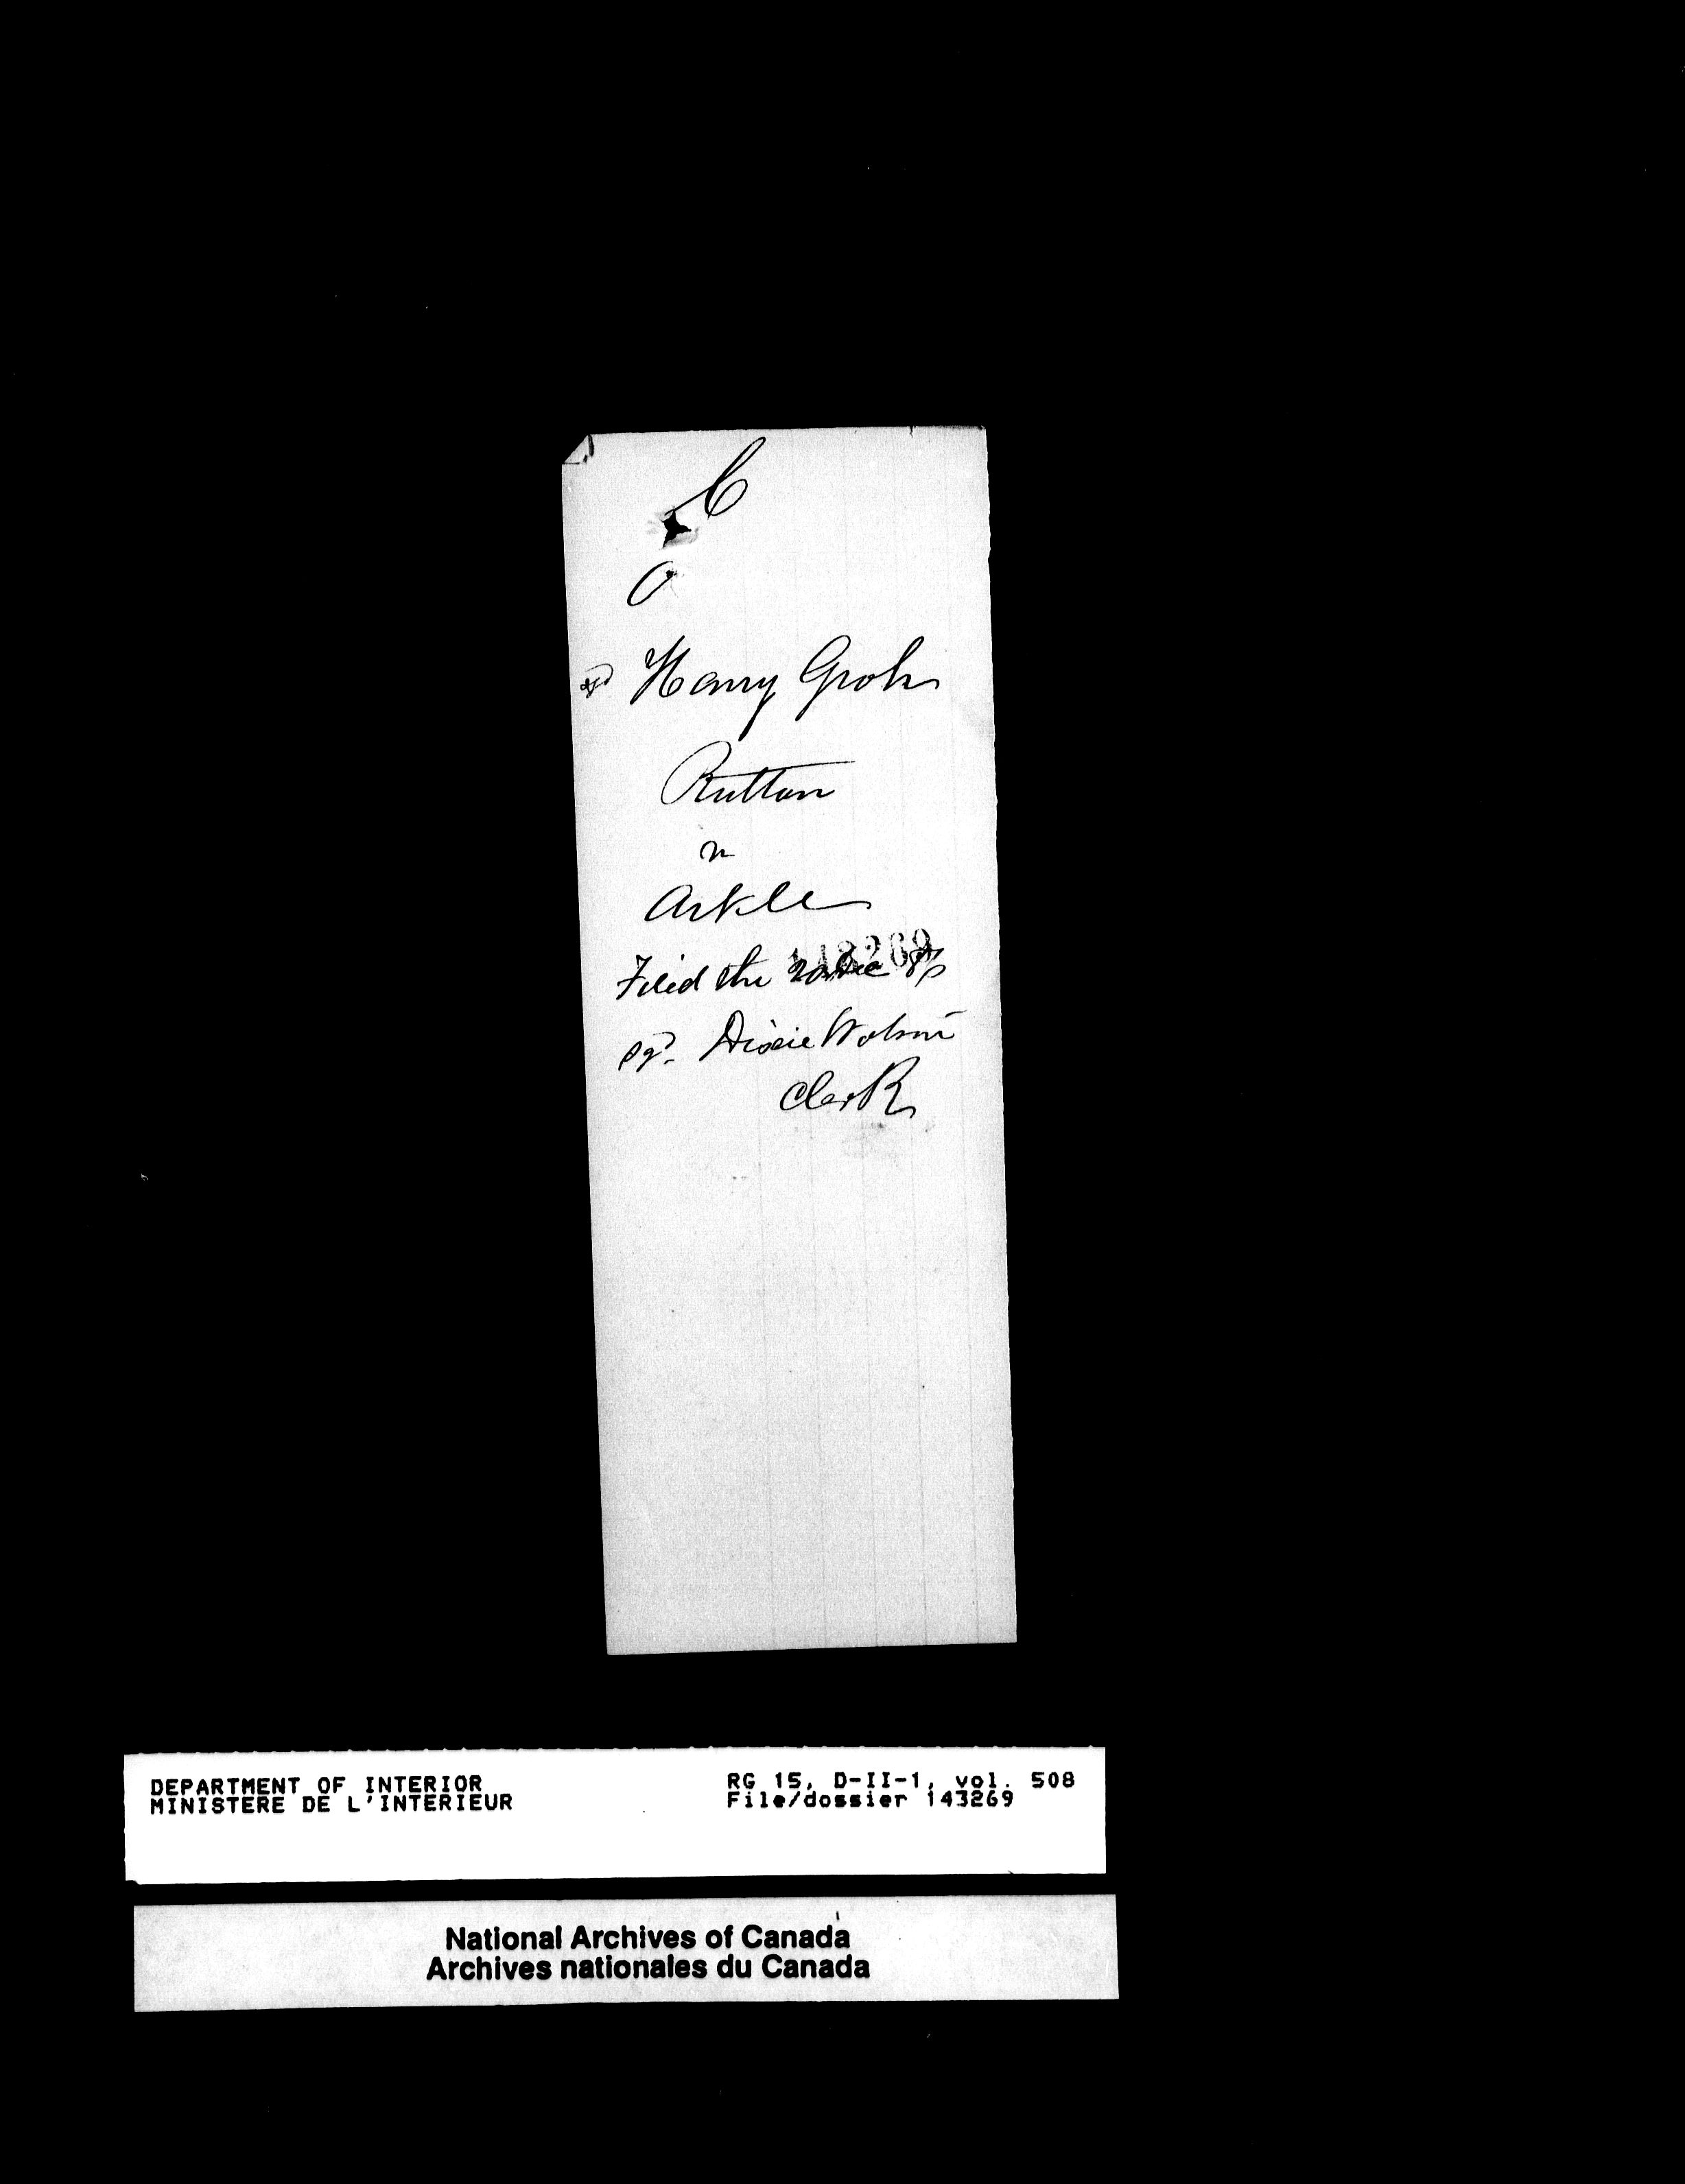 C
O
Harry Groh
Ruttan
v
Arkle
143269
Filed the 20 Dec 87
sgd. Dixie Watson
Clerk
DEPARTMENT OF INTERIOR
MINISTERE DE L'INTERIEUR
RG 15, D-II-1, vol. 508
File/dossier 143269
National Archives of Canada
Archives nationales du Canada